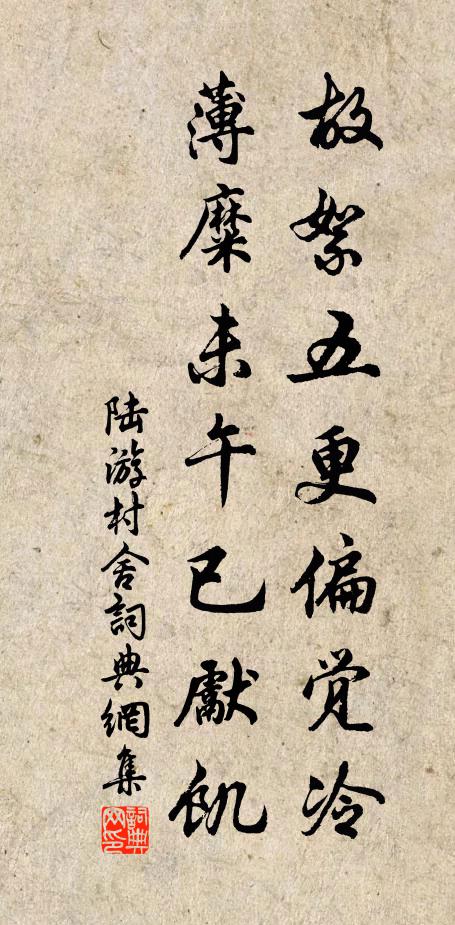 故絮五更偏觉冷
薄糜未午已獻飢
陆游村舍詞典網集
詞典网印